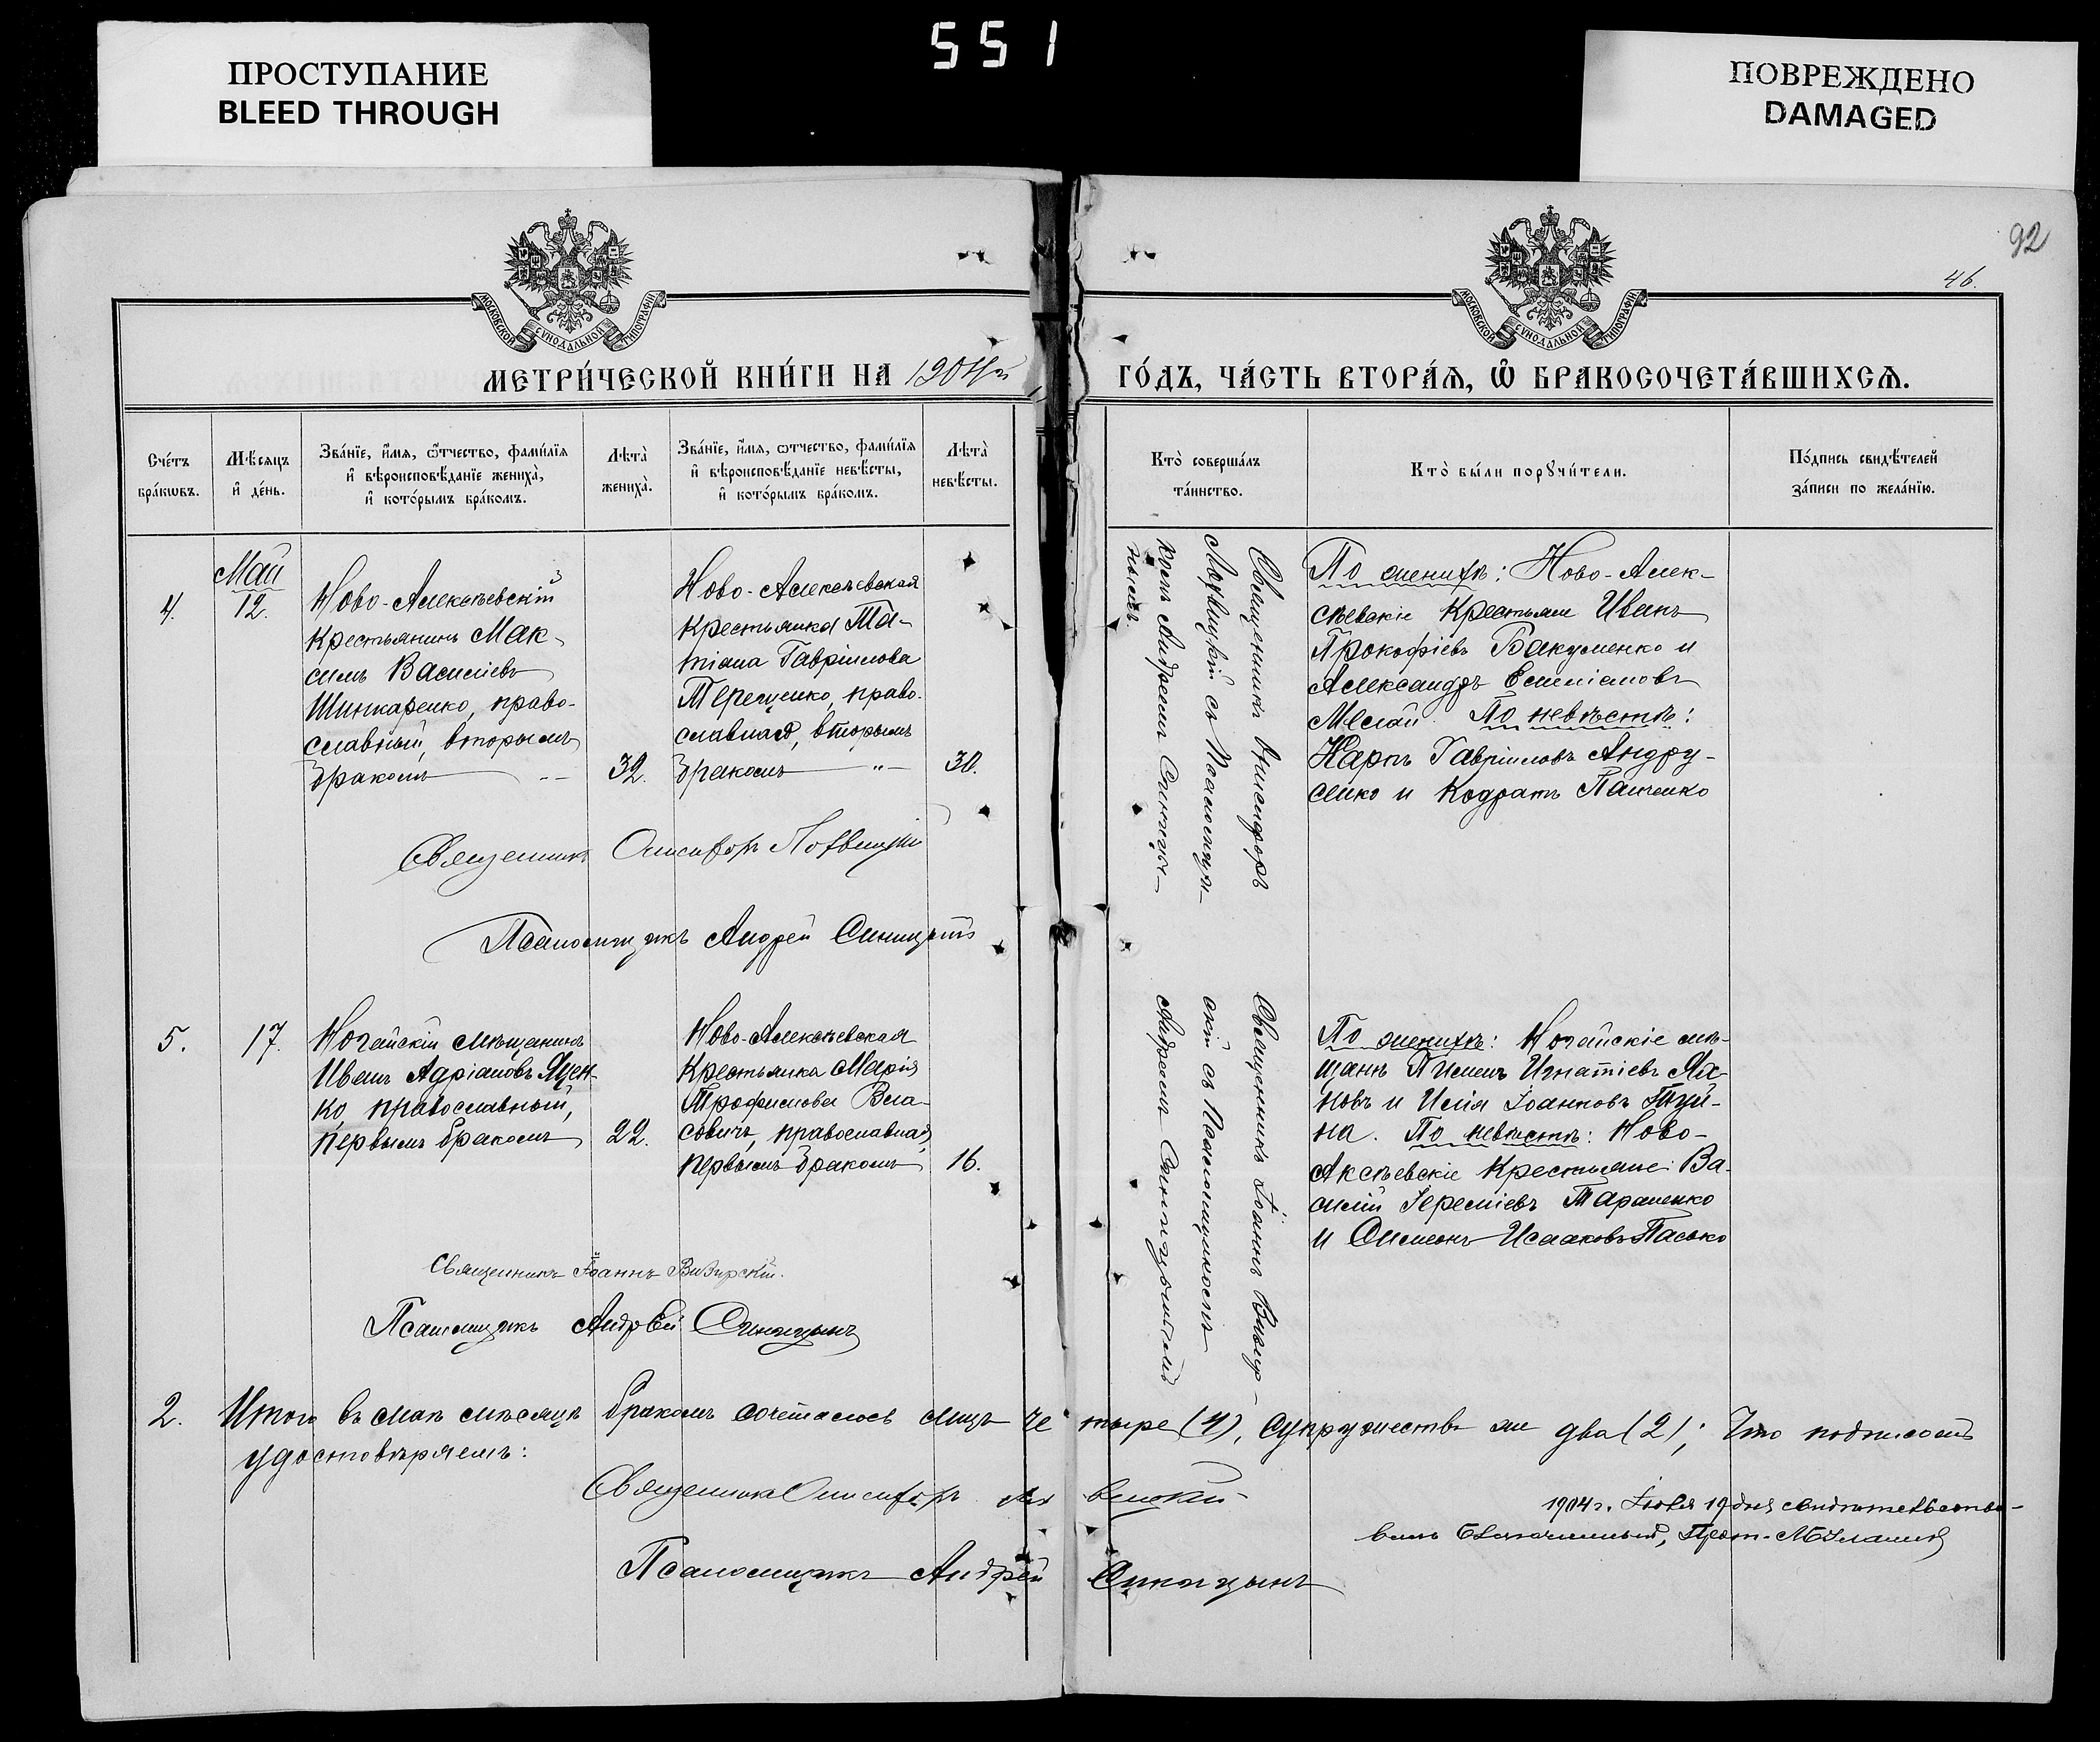 551
ПРОСТУПАНИЕ
BLEED THROUGH
ПОВРЕЖДЕНО
DAMAGED
92
46.
МОСКОВСКОЙ СУНОДАЛЬНОЙ ТИПОГРАФІИ
МОСКОВСКОЙ СУНОДАЛЬНОЙ ТИПОГРАФІИ
МЕТРИ́ЧЕСКОЙ КНИ́ГИ НА 1904й ГО́ДЪ, ЧА́СТЬ ВТОРА́Я, Ѡ҆ БРАКОСОЧЕТА́ВШИХСѦ.
Сче́тъ
бра́кѡвъ.
Мѣ́сяцъ
и҆ де́нь.
Зва́нїе, и҆́мя, ѻ҆́тчество, фами́лїя
и҆ вѣроисповѣ́данїе жениха̀,
и҆ кото́рымъ бра́комъ.
Лѣта̀
жениха̀.
Зва́нїе, и҆́мя, ѻтчество, фами́лїя
и҆ вѣроисповѣ́данїе невѣ́сты,
и҆ кото́рымъ бра́комъ.
Лѣта̀
невѣ́сты.
Кто̀ соверша́лъ
та́инство.
Кто̀ бы́ли порꙋчи́тели.
По́дпись свидѣ́телей
за́писи по жела́нїю.
4.
Май
12.
Ново-Алексѣевскій
крестьянинъ Мак-
симъ Василіевъ
Шинкаренко, право-
славный, вторымъ
бракомъ
32.
Ново-Алексѣевская
крестьянка Та-
тіана Гавріилова
Терещенко, право-
славная, вторымъ
бракомъ
30.
Священникъ Онисифоръ
съ Псаломщи-
комъ Андреемъ Синицы-
нымъ.
По женихѣ: Ново-Алек-
сѣевскіе крестьяне Иванъ
Прокофіевъ Бакуменко и
Александръ Емиліановъ
По невѣстѣ:
Карпъ Гавріиловъ Андру-
сенко и Кодратъ Панченко
Священникъ Онисифоръ
Псаломщикъ Андрей Синицынъ
5.
17.
Ногайскій мѣщанинъ
Иванъ Адріановъ Яцен-
ко, православный,
первымъ бракомъ
22.
Ново-Алексѣевская
крестьянка Марія
Трофимова Вла-
совичъ, православная,
первымъ бракомъ
16.
Священникъ Іоаннъ Визир-
скій съ Псаломщикомъ
Андреемъ Синицынымъ
По женихѣ: Ногайскіе мѣ-
щане Пименъ Игнатіевъ
и Илія Іоанновъ
По невѣстѣ: Ново-
Аксѣевскіе крестьяне: Ва-
силій Іереміевъ Тараненко
и Симеонъ Исааковъ Пасько
Священникъ Іоаннъ Визирскій.
Псаломщикъ Андрей Синицынъ
2. Итого въ маѣ мѣсяцѣ бракомъ сочеталось лицъ четыре (4), супружествъ же два (2); Что подписомъ
удостовѣряемъ:
Священникъ Онисифоръ
Псаломщикъ Андрей Синицынъ
1904 г. Іюля 19 дня свидѣтельство-
валъ Благочинный, Прот.